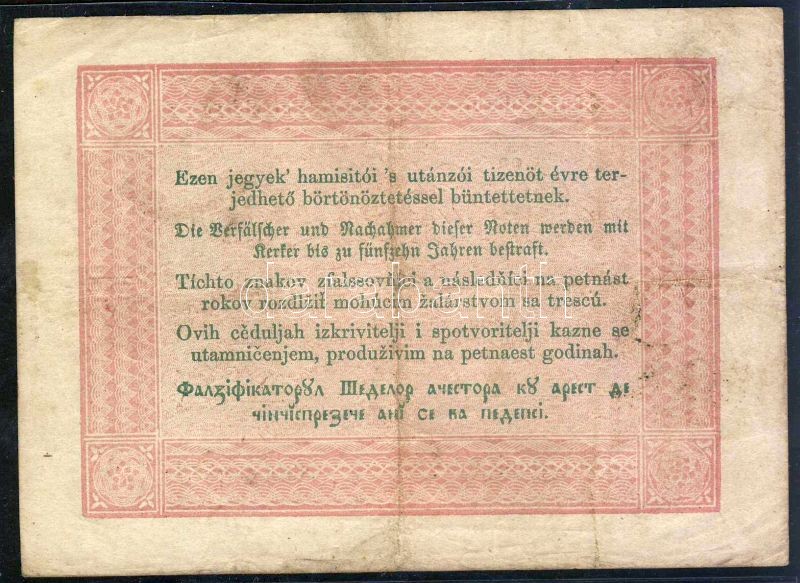 Ezen jegyek' hamisitói 's utánzói tizenöt évre ter-
jedhető börtönöztetéssel büntettetnek.
Die Verfälscher und Nachahmer dieser Noten werden mit
Kerker bis zu fünfzehn Jahren bestraft.
Tíchto znakov zfalssovňíci a následňíci na petnást
rokov rozdlžiť mohúcim žalárstvom sa trescú.
Ovih cĕduljah izkrivitelji i spotvoritelji kazne se
utamničenjem, produživim na petnaest godinah.
Фалзіфікаторꙋл Шеделор ачестора кꙋ арест де
чінчіспрезече ані се ва педепсі.
darabanth